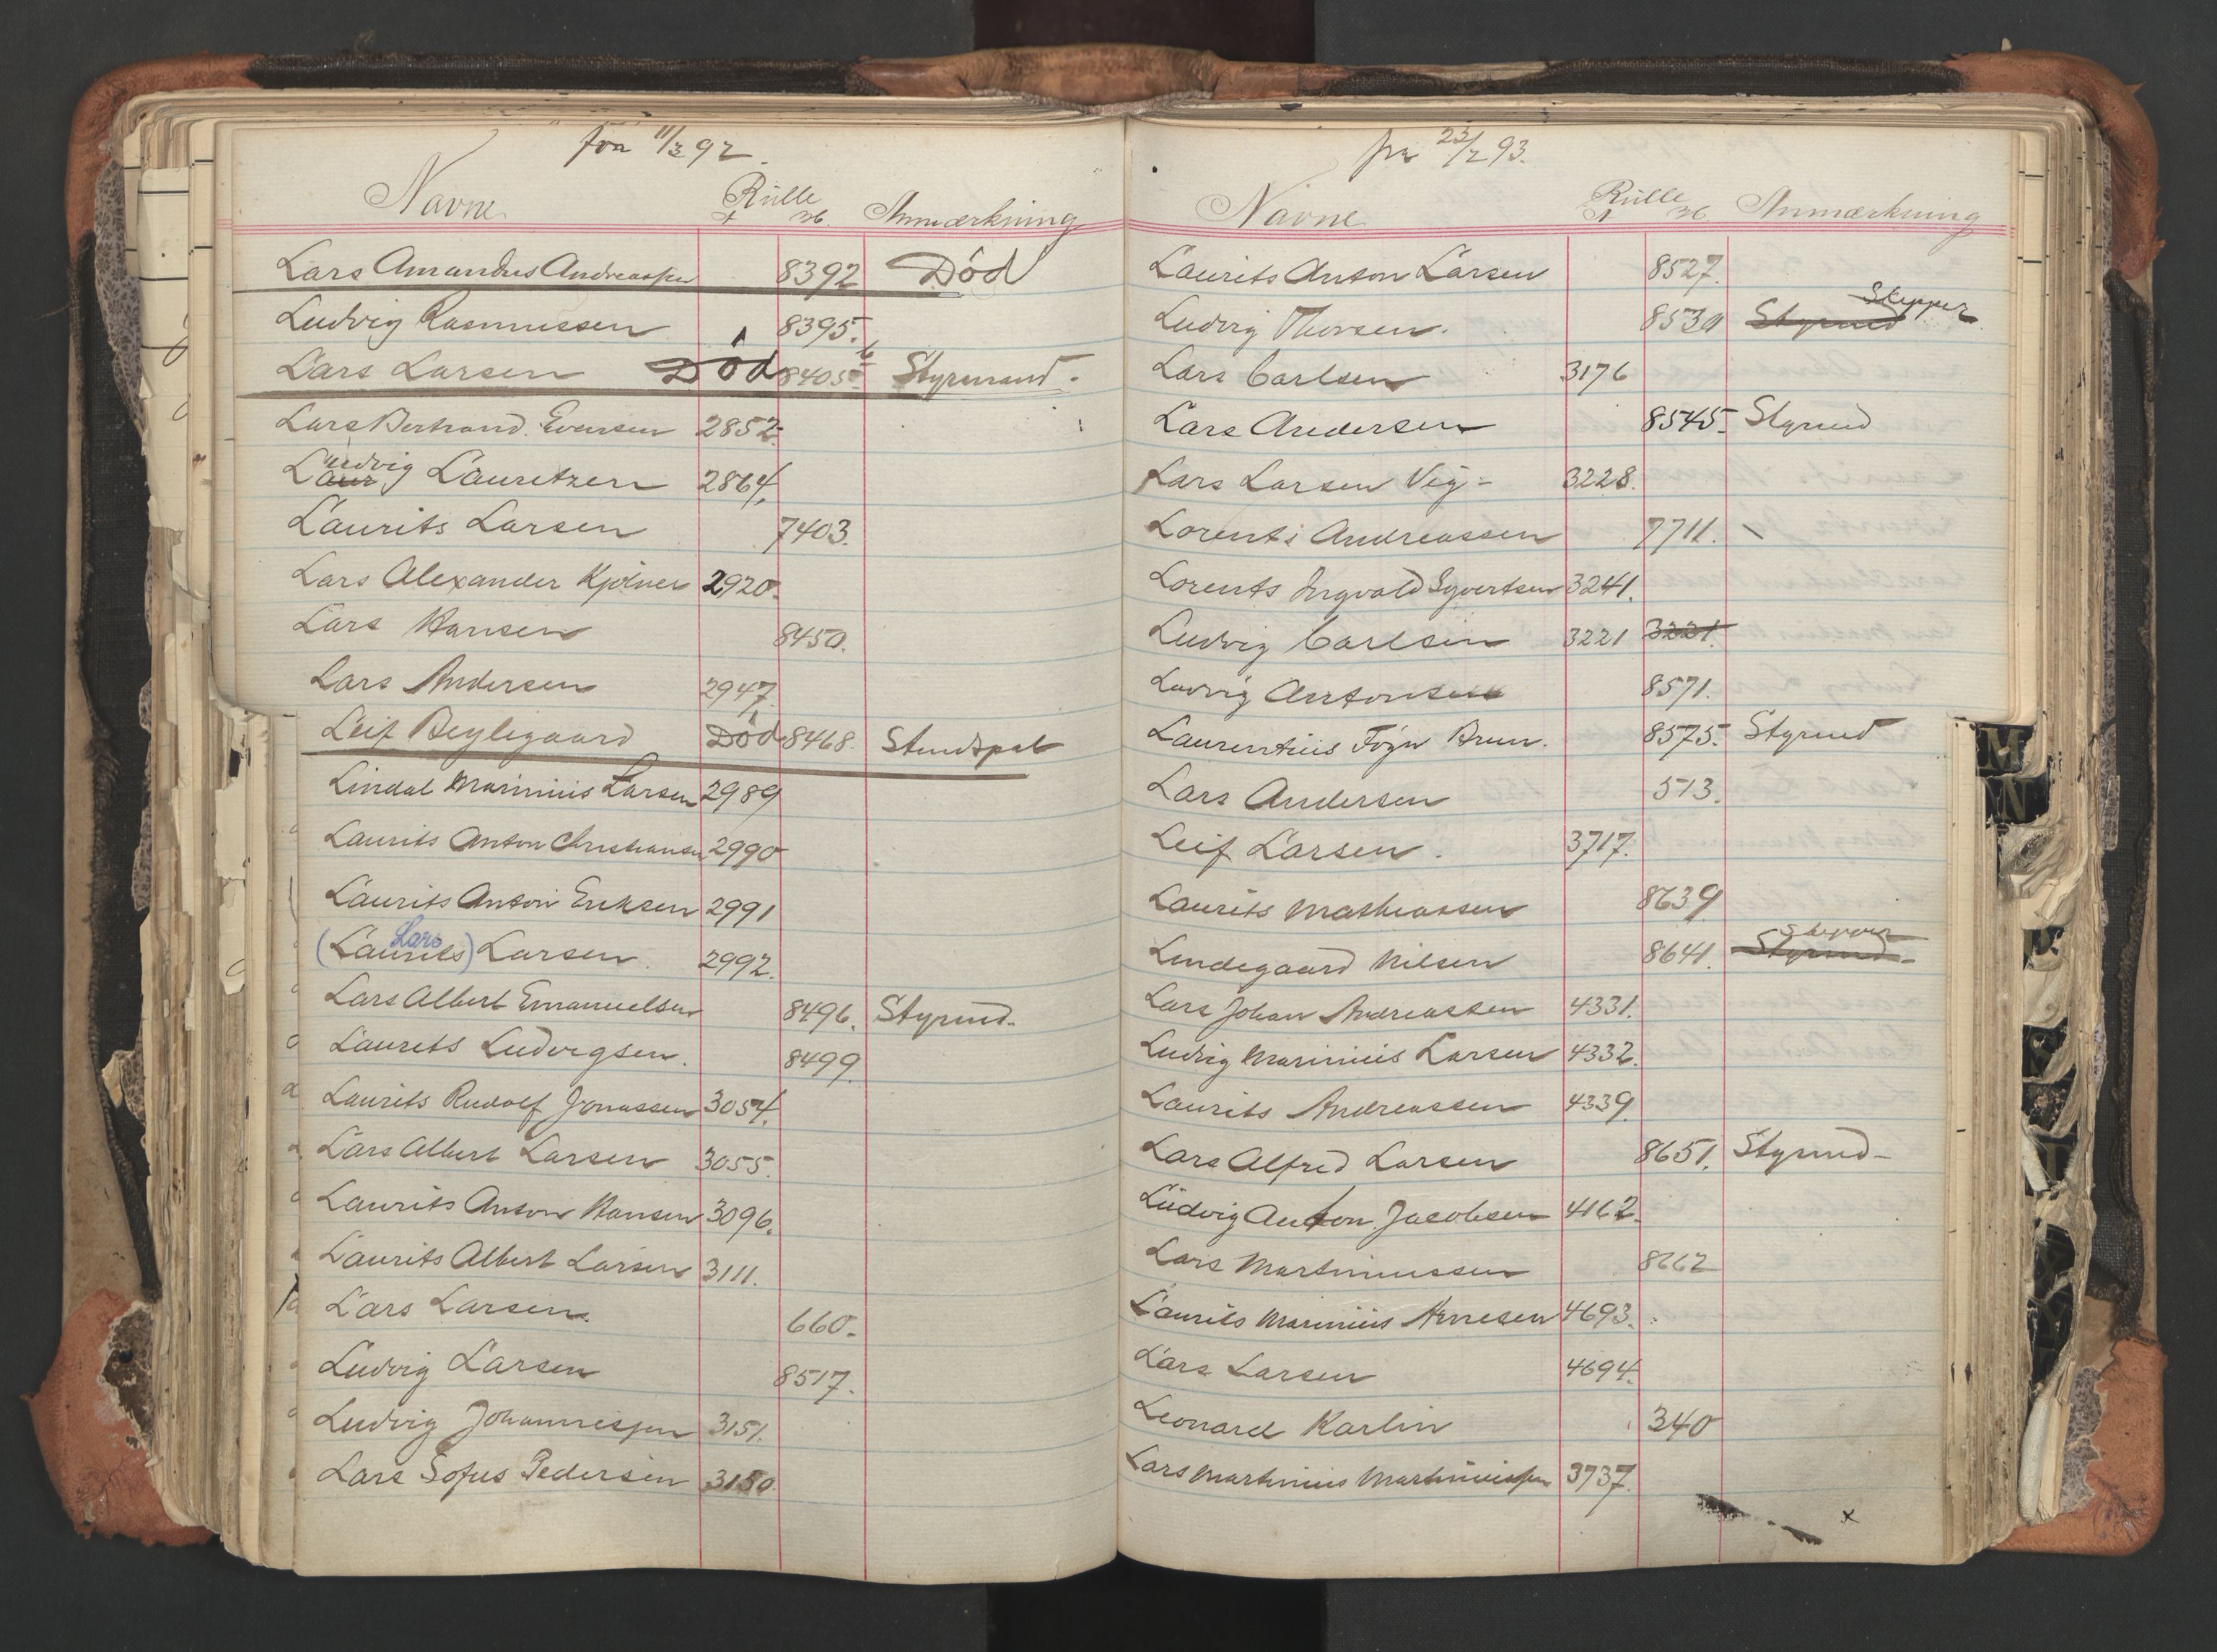 fra 11/3 92.
Navne Rulle Anmærkning
A No.
Lars Amandus Andreassen 8392 Död
Ludvig Rasmussen 8395.
Lars Larsen Död 8405 b Styrmand.
Lars Bertrand Evensen 2852.
Laur Ludvig Lauritzen 2864.
Laurits Larsen 7403.
Lars Alexander Kjölner 2920.
Lars Hansen 8450.
Lars Andersen 2947.
Leif Beylegaard Död 8468.
Lindal Marinius Larsen 2989
Laurits Anton Christiansen 2990
Laurits Anton Eriksen 2991
(Laurits) Lars Larsen 2992.
Lars Albert Emanuelsen 8496. Styrmd.
Laurits Ludvigsen. 8499.
Laurits Rudolf Jonassen 3054.
Lars Albert Larsen 3055.
Laurits Anton Hansen 3096.
Laurits Albert Larsen 3111.
Lars Larsen. 660.
Ludvig Larsen 8517.
Ludvig Johannessen 3151.
Lars Sofus Pedersen 3150.
fra 23/2 93.
Navne Rulle Anmærkning
A No.
Laurits Anton Larsen 8527.
Ludvig Thorsen. 8530 Styrmd Skipper
Lars Carlsen 3176
Lars Andersen 8545. Styrmd
Lars Larsen Vig- 3228.
Lorents Andreassen 7711.
Lorents Ingvald Syvertsen 3241.
Ludvig Carlsen 3221 3221.
Ludvig Antonsen 8571.
Laurentius Brun. 8575. Styrmd
Lars Andersen 513.
Leif Larsen. 3717.
Laurits Mathiassen 8639
Lindegaard Nilsen 8641. Styrmd Skipper
Lars Johan Andreassen 4331.
Ludvig Marinius Larsen 4332.
Laurits Andreassen 4339.
Lars Alfred Larsen 8651. Styrmd-
Ludvig Anton Jacobsen 4162.
Lars Martinussen 8662
Laurits Marinius Arnesen 4693.
Lars Larsen 4694.
Leonard Karlin 340
Lars Martinius Martiniussen 3737.
x
M
N